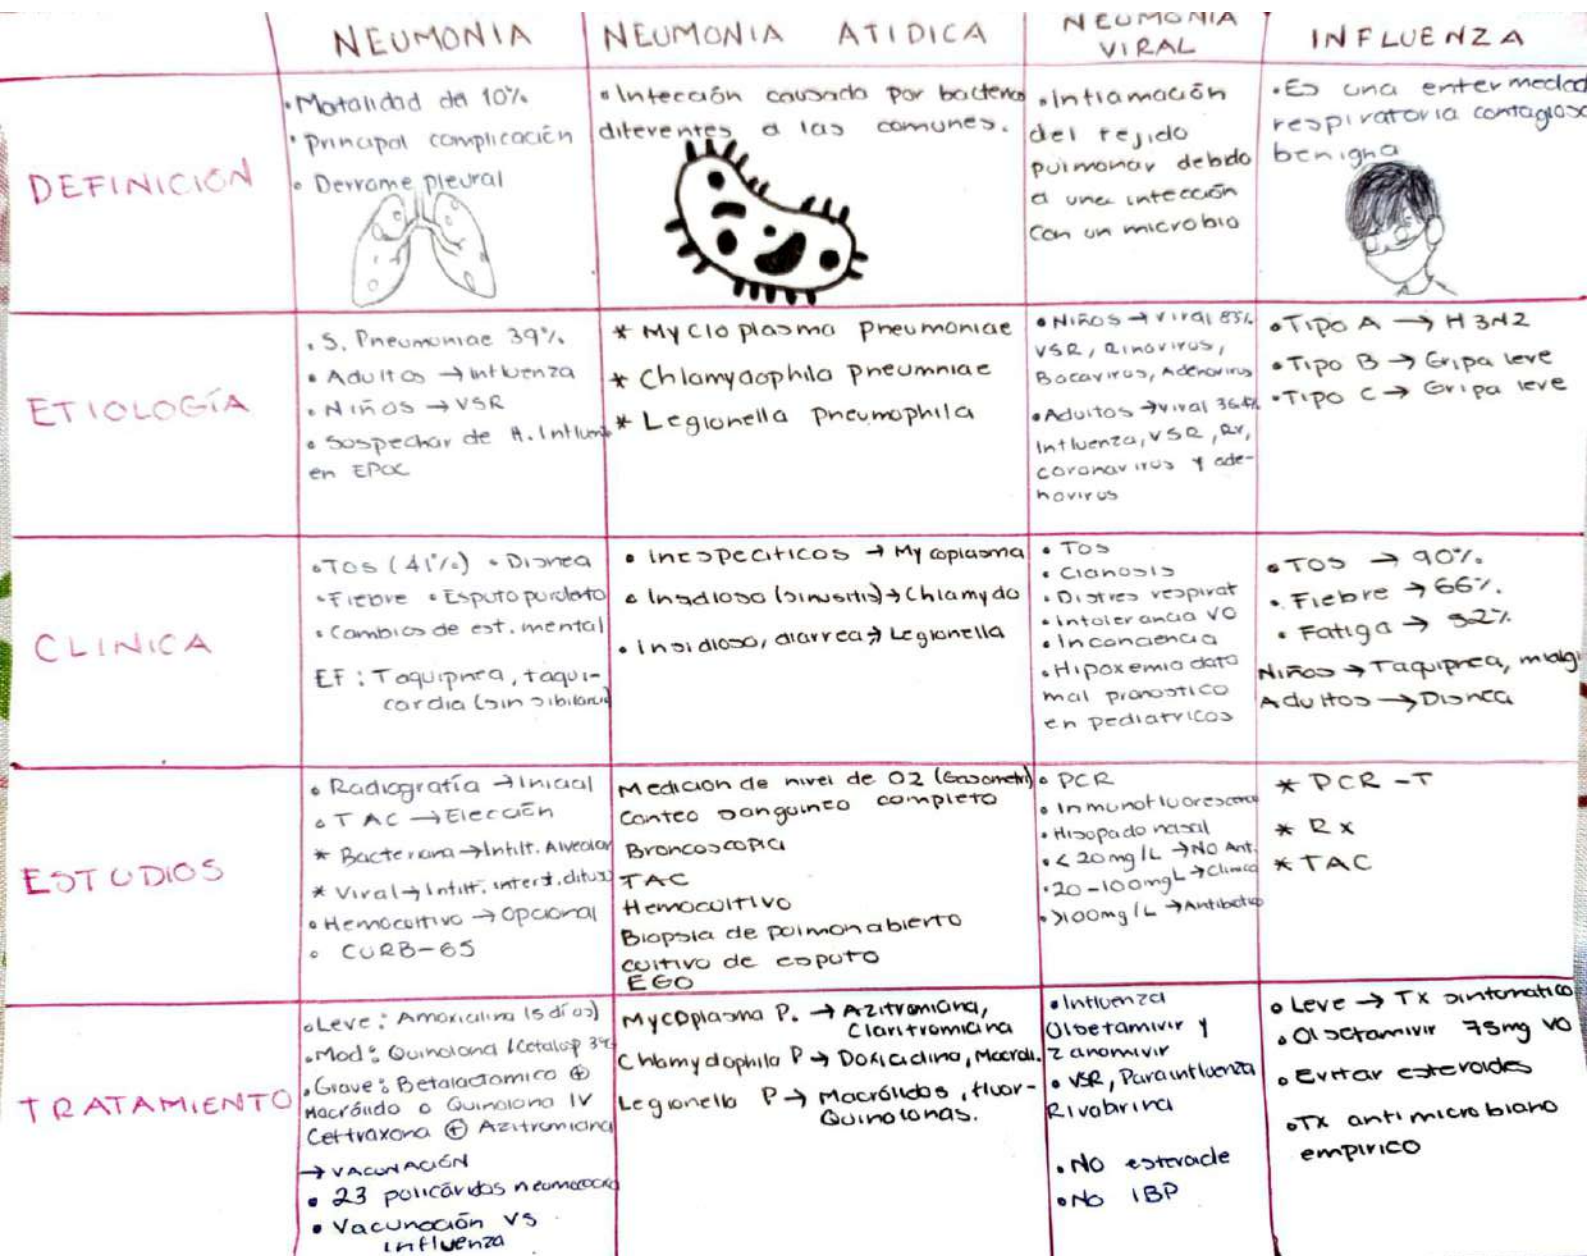 NEUMONIA
NEUMONIA ATIDICA
NEUMONIA
VIRAL
INFLUENZA
DEFINICIÓN
• Mortalidad del 10%
• Principal complicación
• Derrame pleural
• Infección causada por bacterias
diferentes a las comunes.
• Inflamación
del tejido
pulmonar debido
a una infección
con un microbio
• Es una enfermedad
respiratoria contagiosa
benigna
ETIOLOGÍA
• S. Pneumoniae 39%
• Adultos → influenza
• Niños → VSR
• Sospechar de H. Influen
en EPOC
* Mycloplasma Pneumoniae
* Chlamydophila pneumniae
* Legionella Pneumophila
• Niños → viral 83%
VSR, Rinovirus,
Bocavirus, Adenovirus
• Adultos → viral 36.4%
Influenza, VSR, RV,
coronavirus y ade-
novirus
• Tipo A → H3N2
• Tipo B → Gripa leve
• Tipo C → Gripa leve
CLINICA
• Tos (41%) • Disnea
• Fiebre • Esputo purulento
• Cambios de est. mental
EF: Taquipnea, taqui-
cardia (sin sibilancia)
• Inespecificos → Mycoplasma
• Insdioso (sinusitis) → Chlamydo
• Insidioso, diarrea → Legionella
• Tos
• Cianosis
• Distres respirat
• Intolerancia VO
• Inconciencia
• Hipoxemia dato
mal pronostico
en pediatricos
• TOS → 90%.
• Fiebre → 66%.
• Fatiga →
Niños → Taquipnea, mialgi
Adultos → Disnea
ESTUDIOS
• Radiografía → Inicial
• TAC → Elección
* Bacteriana → Infilt. Alveolar
* Viral → Infilt. interst. difuso
• Hemocultivo → Opcional
• CURB-65
Medicion de nivel de O2 (Gasometri)
Conteo sanguineo completo
Broncoscopia
TAC
Hemocultivo
Biopsia de pulmon abierto
cultivo de esputo
EGO
• PCR
• Inmunofluorescencia
• Hisopado nasal
• < 20mg/L → NO Ant.
• 20-100mgL → Clinica
• >100mg/L → Antibiotico
* PCR-T
* Rx
* TAC
TRATAMIENTO
• Leve: Amoxicilina (5 días)
• Mod: Quinolona /Cefalosp 3ª
• Grave: Betalactamico ⊕
Macrólido o Quinolona IV
Ceftraxona ⊕ Azitromicina
→ VACUNACIÓN
• 23 policáridos neumococo
• Vacunación vs
influenza
Mycoplasma P. → Azitromicina,
Claritromicina
Chlamydophila P → Doxiciclina, Macroli.
Legionella P → Macrólidos, fluor-
Quinolonas.
• Influenza
Olsetamivir y
zanamivir
• VSR, Parainfluenza
Rivabirina
• No esteroide
• No IBP
• Leve → Tx sintomatico
• Olsetamivir 75mg VO
• Evitar esteroides
• Tx antimicrobiano
empirico